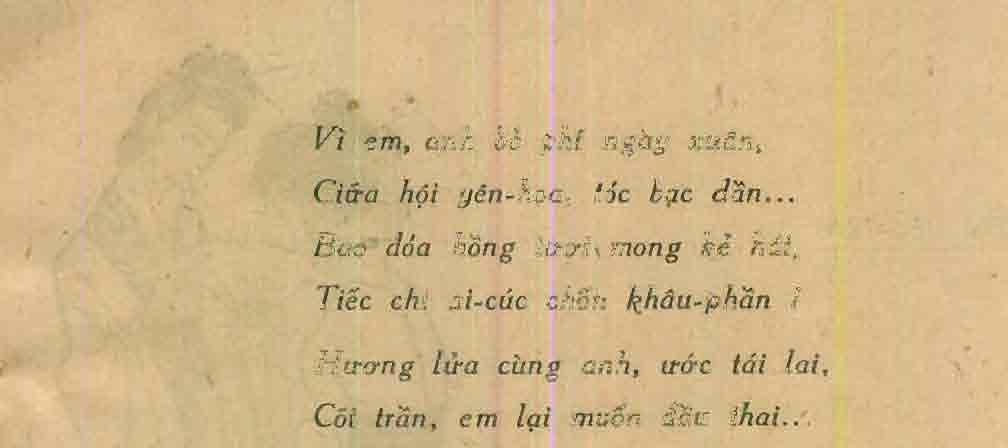 Vì em, anh bỏ phí ngày xuân,
Giữa hội yên-hoa, tóc bạc dần...
Bao đóa hồng tươi mong kẻ hái,
Tiếc chi ai-cúc chốn khâu-phần !
Hương lửa cùng anh, ước tái lai,
Cõi trần, em lại muốn đầu thai...